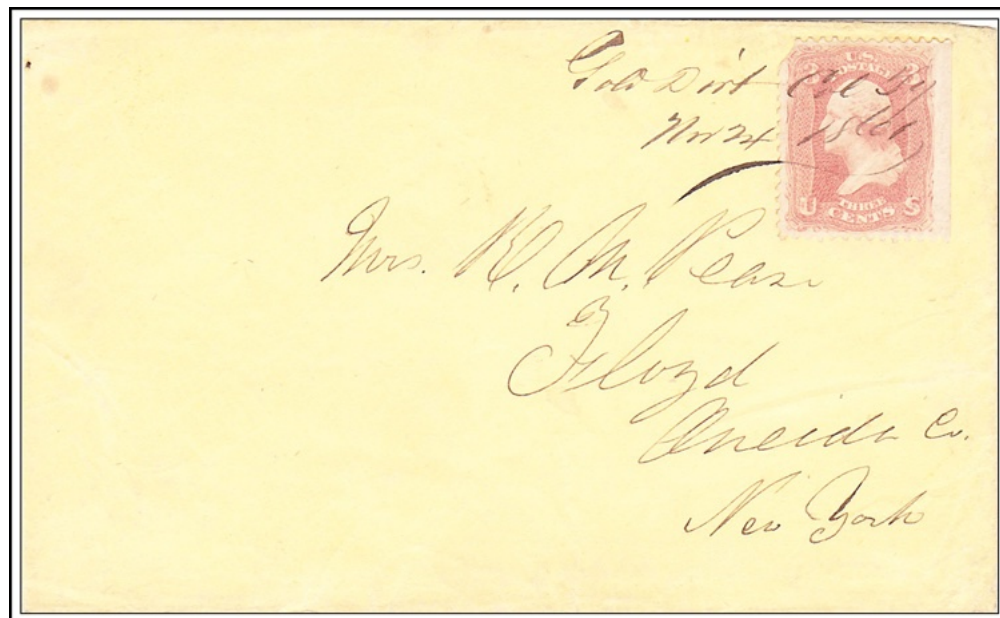 Gold Dirt Col Ty
Nov 24 1861
U.S.
POSTAGE
3 3
THREE
CENTS
U S
Mrs. R. M. Pease
Floyd
Oneida Co.
New York